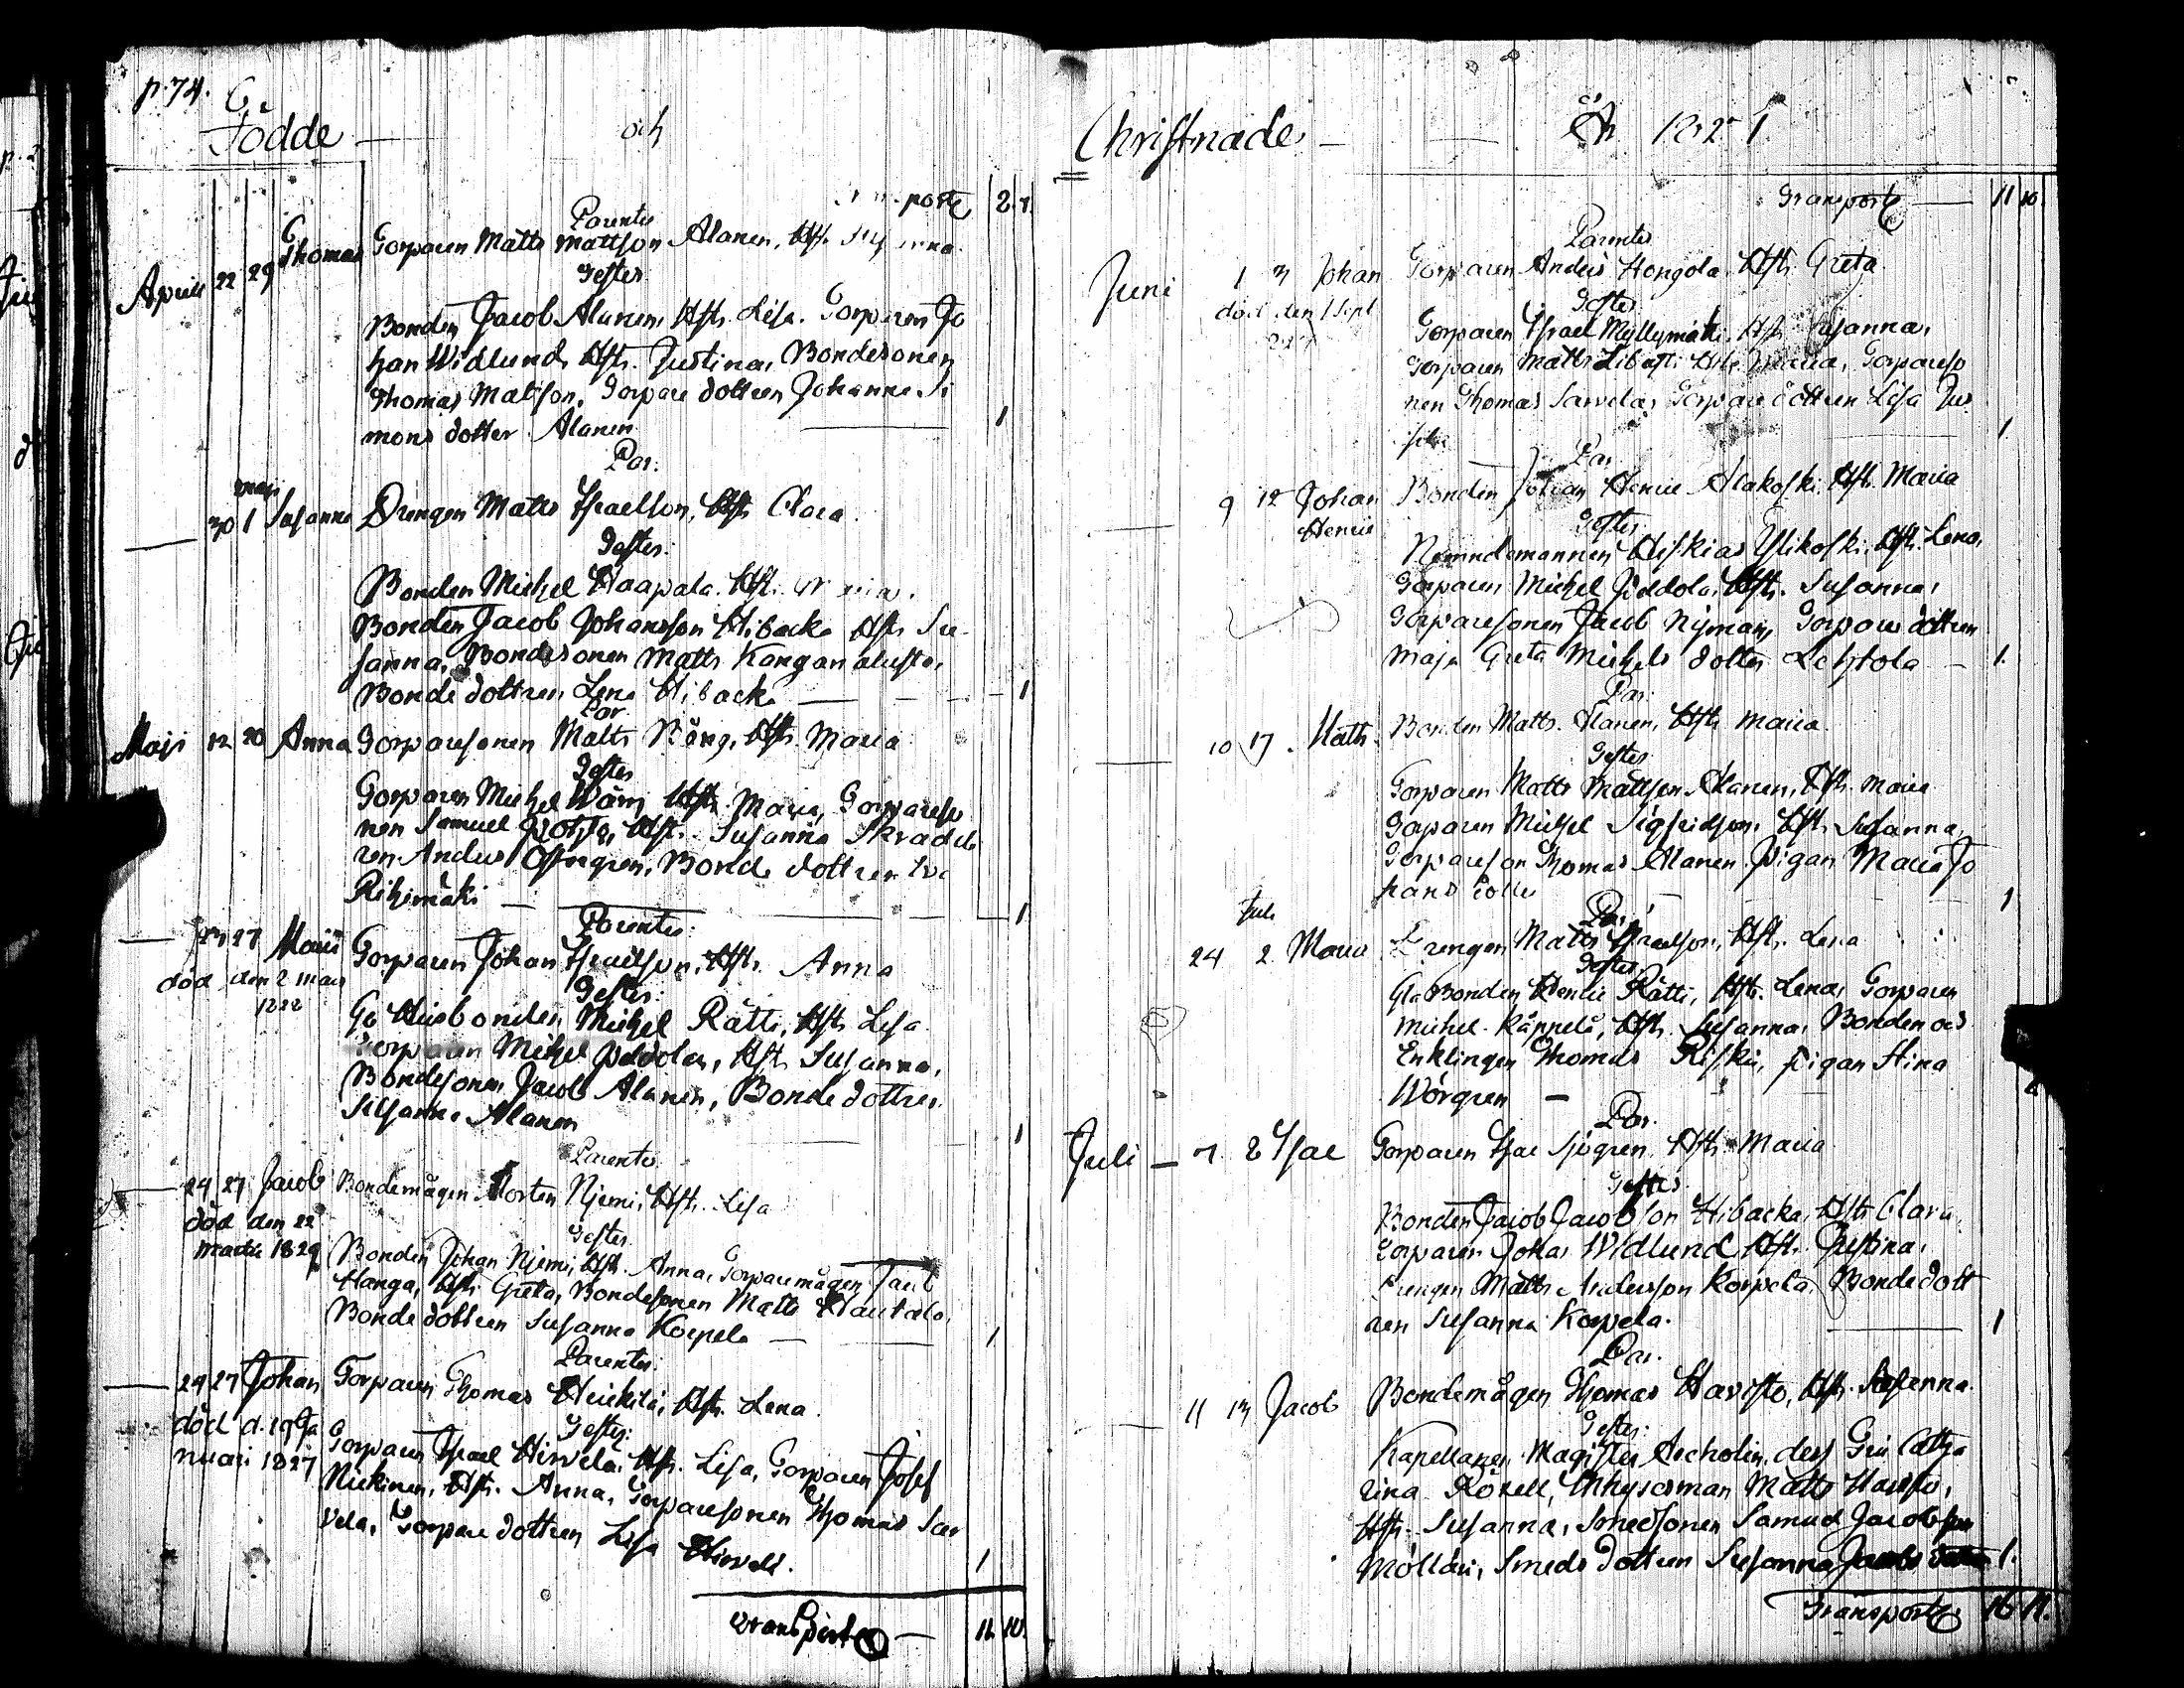 p. 74.
Födde — och
porte 2. 7.
Parentes
April 22 29 Thomas Torparen Matts Mattson Alanen, Hst.
Testes
Bonden Jacob Alanen, Hst. Lisa. Torparen Jo
han Widlund, Hst. Justina, Bondesonen
Thomas Matsson, Torpare dottren Johanna Si
mons dotter Alanen — 1
Par:
— 30 maji 1 Susanna Drengen Matts Israelson, Hst. Clara
Testes:
Bonden Michel Haapala. Hst.
Bonden Jacob Johansson Hibacka Hst. Su
sanna, Bondesonen Matts Kangan
Bonde dottren Lena Hibacka — 1
Par.
Maji 12 20 Anna Torparesonen Matts Häng, Hst. Maria
Testes
Torparen Michel Wäns Hst. Maria, Torpareso
nen Samuel Hst. Susanna Skradda
ren Anders Bonde dottren
Rihimäki — 1
Parentes
— 23 27 Maria Torparen Johan Israelson, Hst. Anna
död den 2 Mars
1822
Testes:
Husbonden Michel Rätti, Hst. Lisa
Torparen Michel Peldola, Hst. Susanna,
Bondesonen Jacob Alanen, Bonde dottren
Susanna Alanen 1
Parentes
— 24 27 Jacob Bondemågen Morten Njemi, Hst. Lisa
död den 22
Martii 1829
Testes
Bonden Johan Njemi, Hst. Anna, Torparemågen
Hanga, Hst. Greta, Bondesonen Matts Hautala,
Bonde dottren Susanna Korpela — 1
Parentes:
— 24 27 Johan Torparen Thomas Heickilä, Hst. Lena
död d. 19 Ja
nuari 1827
Testes:
Torparen Israel Hirvela, Hst. Lisa, Torparen Josef
Niekinen, Hst. Anna, Torparesonen Thomas Sar
vela, Torpare dottren Lisa Hirvelä. 1
Transporte — 11 10.
Christnade — År 1821
Transporte — 11 10.
Parentes
Juni 1 3 Johan Torparen Anders Hongola Hst. Greta
död den 1 Sept
Testes
Torparen Israel Myllymäki, Hst. Susanna,
Torparen Matts Hst. Maria, Torpareso
nen Thomas Sarvela, Torpare dottren Lisa
1.
Par
— 9 12 Johan Henric Bonden Johan Henric Alakoski Hst. Maria
Testes
Nemndemannen Heskias Ylikoski, Hst. Lena,
Torparen Michel Peldola, Hst. Susanna,
Torparesonen Jacob Nyman, Torpare dottren
Maja Greta Michels dotter Lehtola — 1.
Par:
— 10 17. Matts Bonden Matts Alanen, Hst. Maria
Testes
Torparen Matts Mattson Alanen, Hst. Maria
Torparen Michel Sigfridson, Hst. Susanna,
Torpareson Thomas Alanen Pigan Maria Jo
hans dotter 1
Par:
24 Juli 2 Maria Drengen Matts Israelson, Hst. Lena
Testes
Gla Bonden Henric Rätti, Hst. Lena, Torparen
Michel Käppelä, Hst. Susanna, Bonden oc
Enklingen Thomas Riski, Pigan Stina
Wörgren —
Par.
Juli — 7. 8 Isac Torparen Isac Sjögren Hst. Maria
Testes
Bonden Jacob Jacobson Hibacka, Hst. Clara,
Torparen Johan Widlund Hst. Justina,
Drengen Matts Andersson Korpela, Bonde dott
ren Susanna Korpela. 1
Par.
— 11 13 Jacob Bondemågen Thomas Havisto, Hst. Susanna
Testes:
Kapellanen Magister Archolin, dess Fru Catha
rina Roxell, Inhysesman Matts Havisto,
Hst. Susanna, Smedsonen Samuel Jacobson
Mollari, Smeds dottren Susanna 1.
Transporte 16 11.